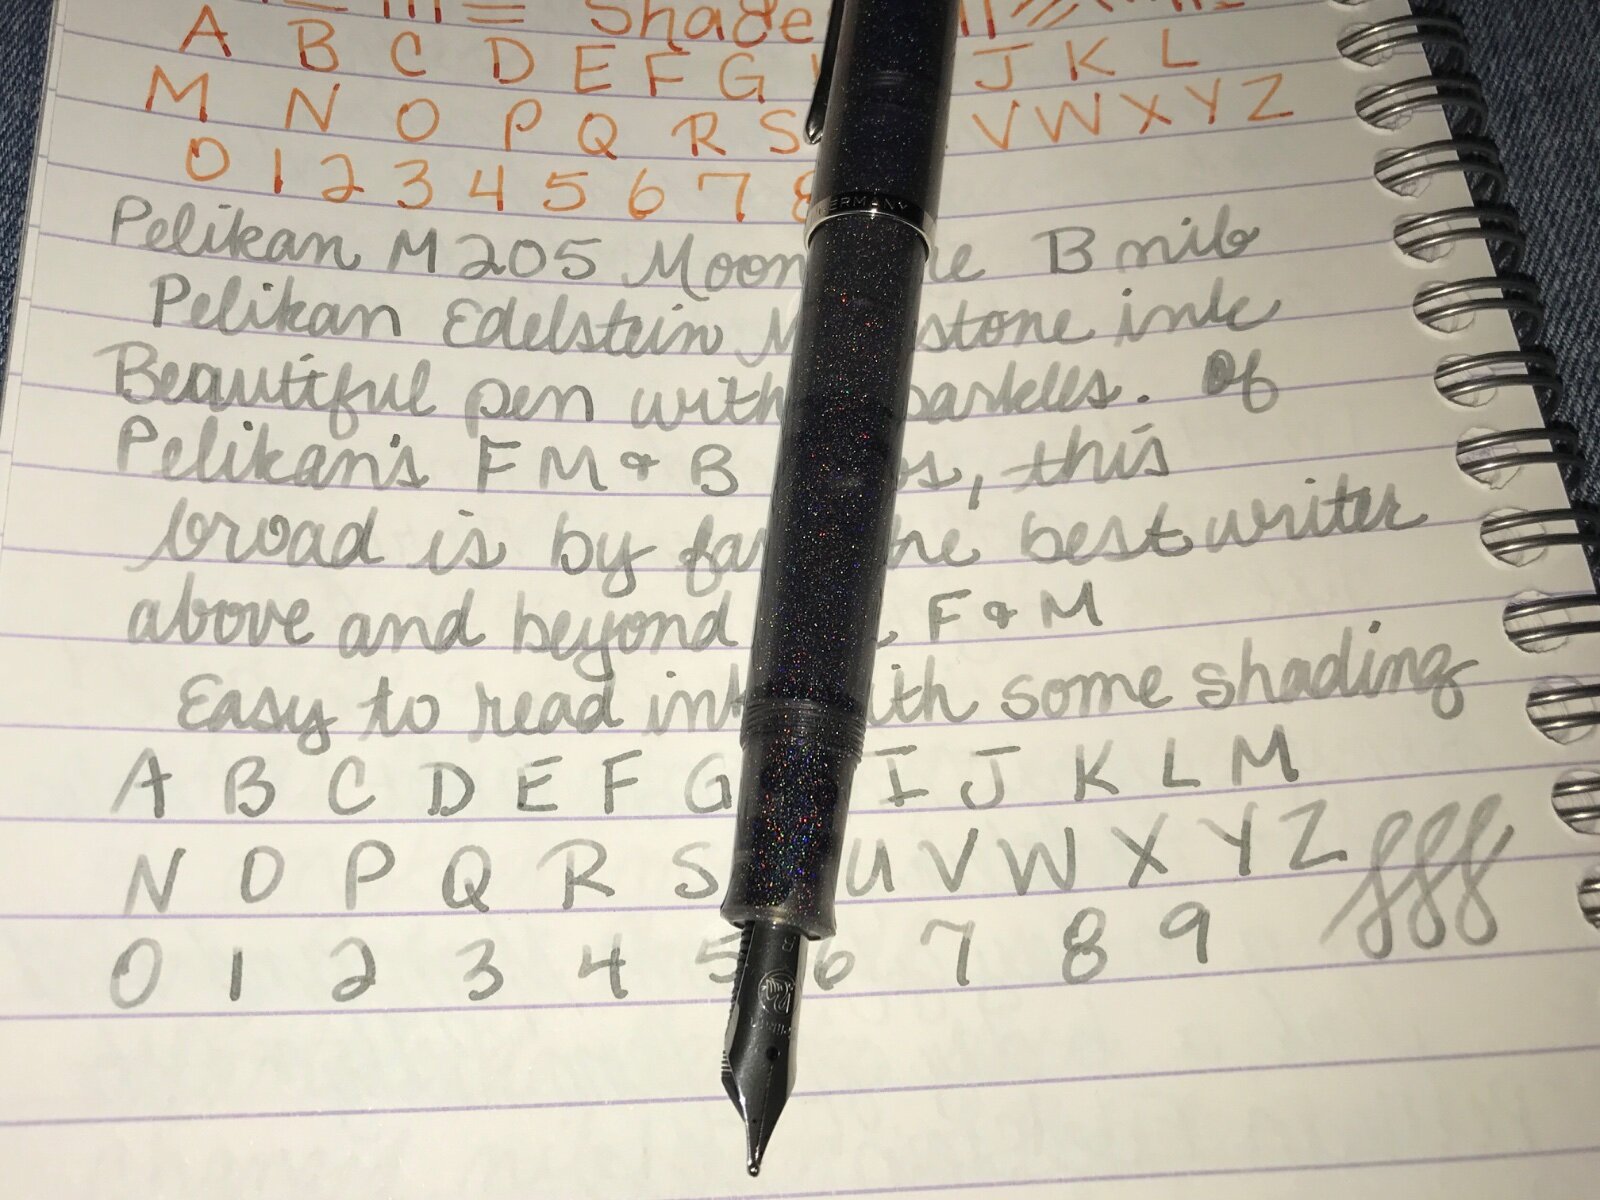 Shade
A B C D E F G J K L
M N O P Q R S V W X Y Z
0 1 2 3 4 5 6 7 8
GERMANY
Pelikan M205 B nib
Pelikan Edelstein ink
Beautiful pen with . Of
Pelikan's F M & B , this
broad is by best writer
above and beyond F & M
Easy to read some shading
A B C D E F G I J K L M
N O P Q R S U V W X Y Z
0 1 2 3 4 5 6 7 8 9
B